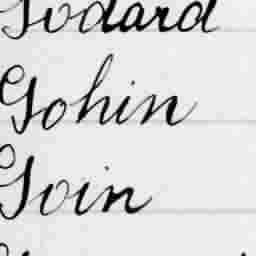 Godard
Gohin
Goin